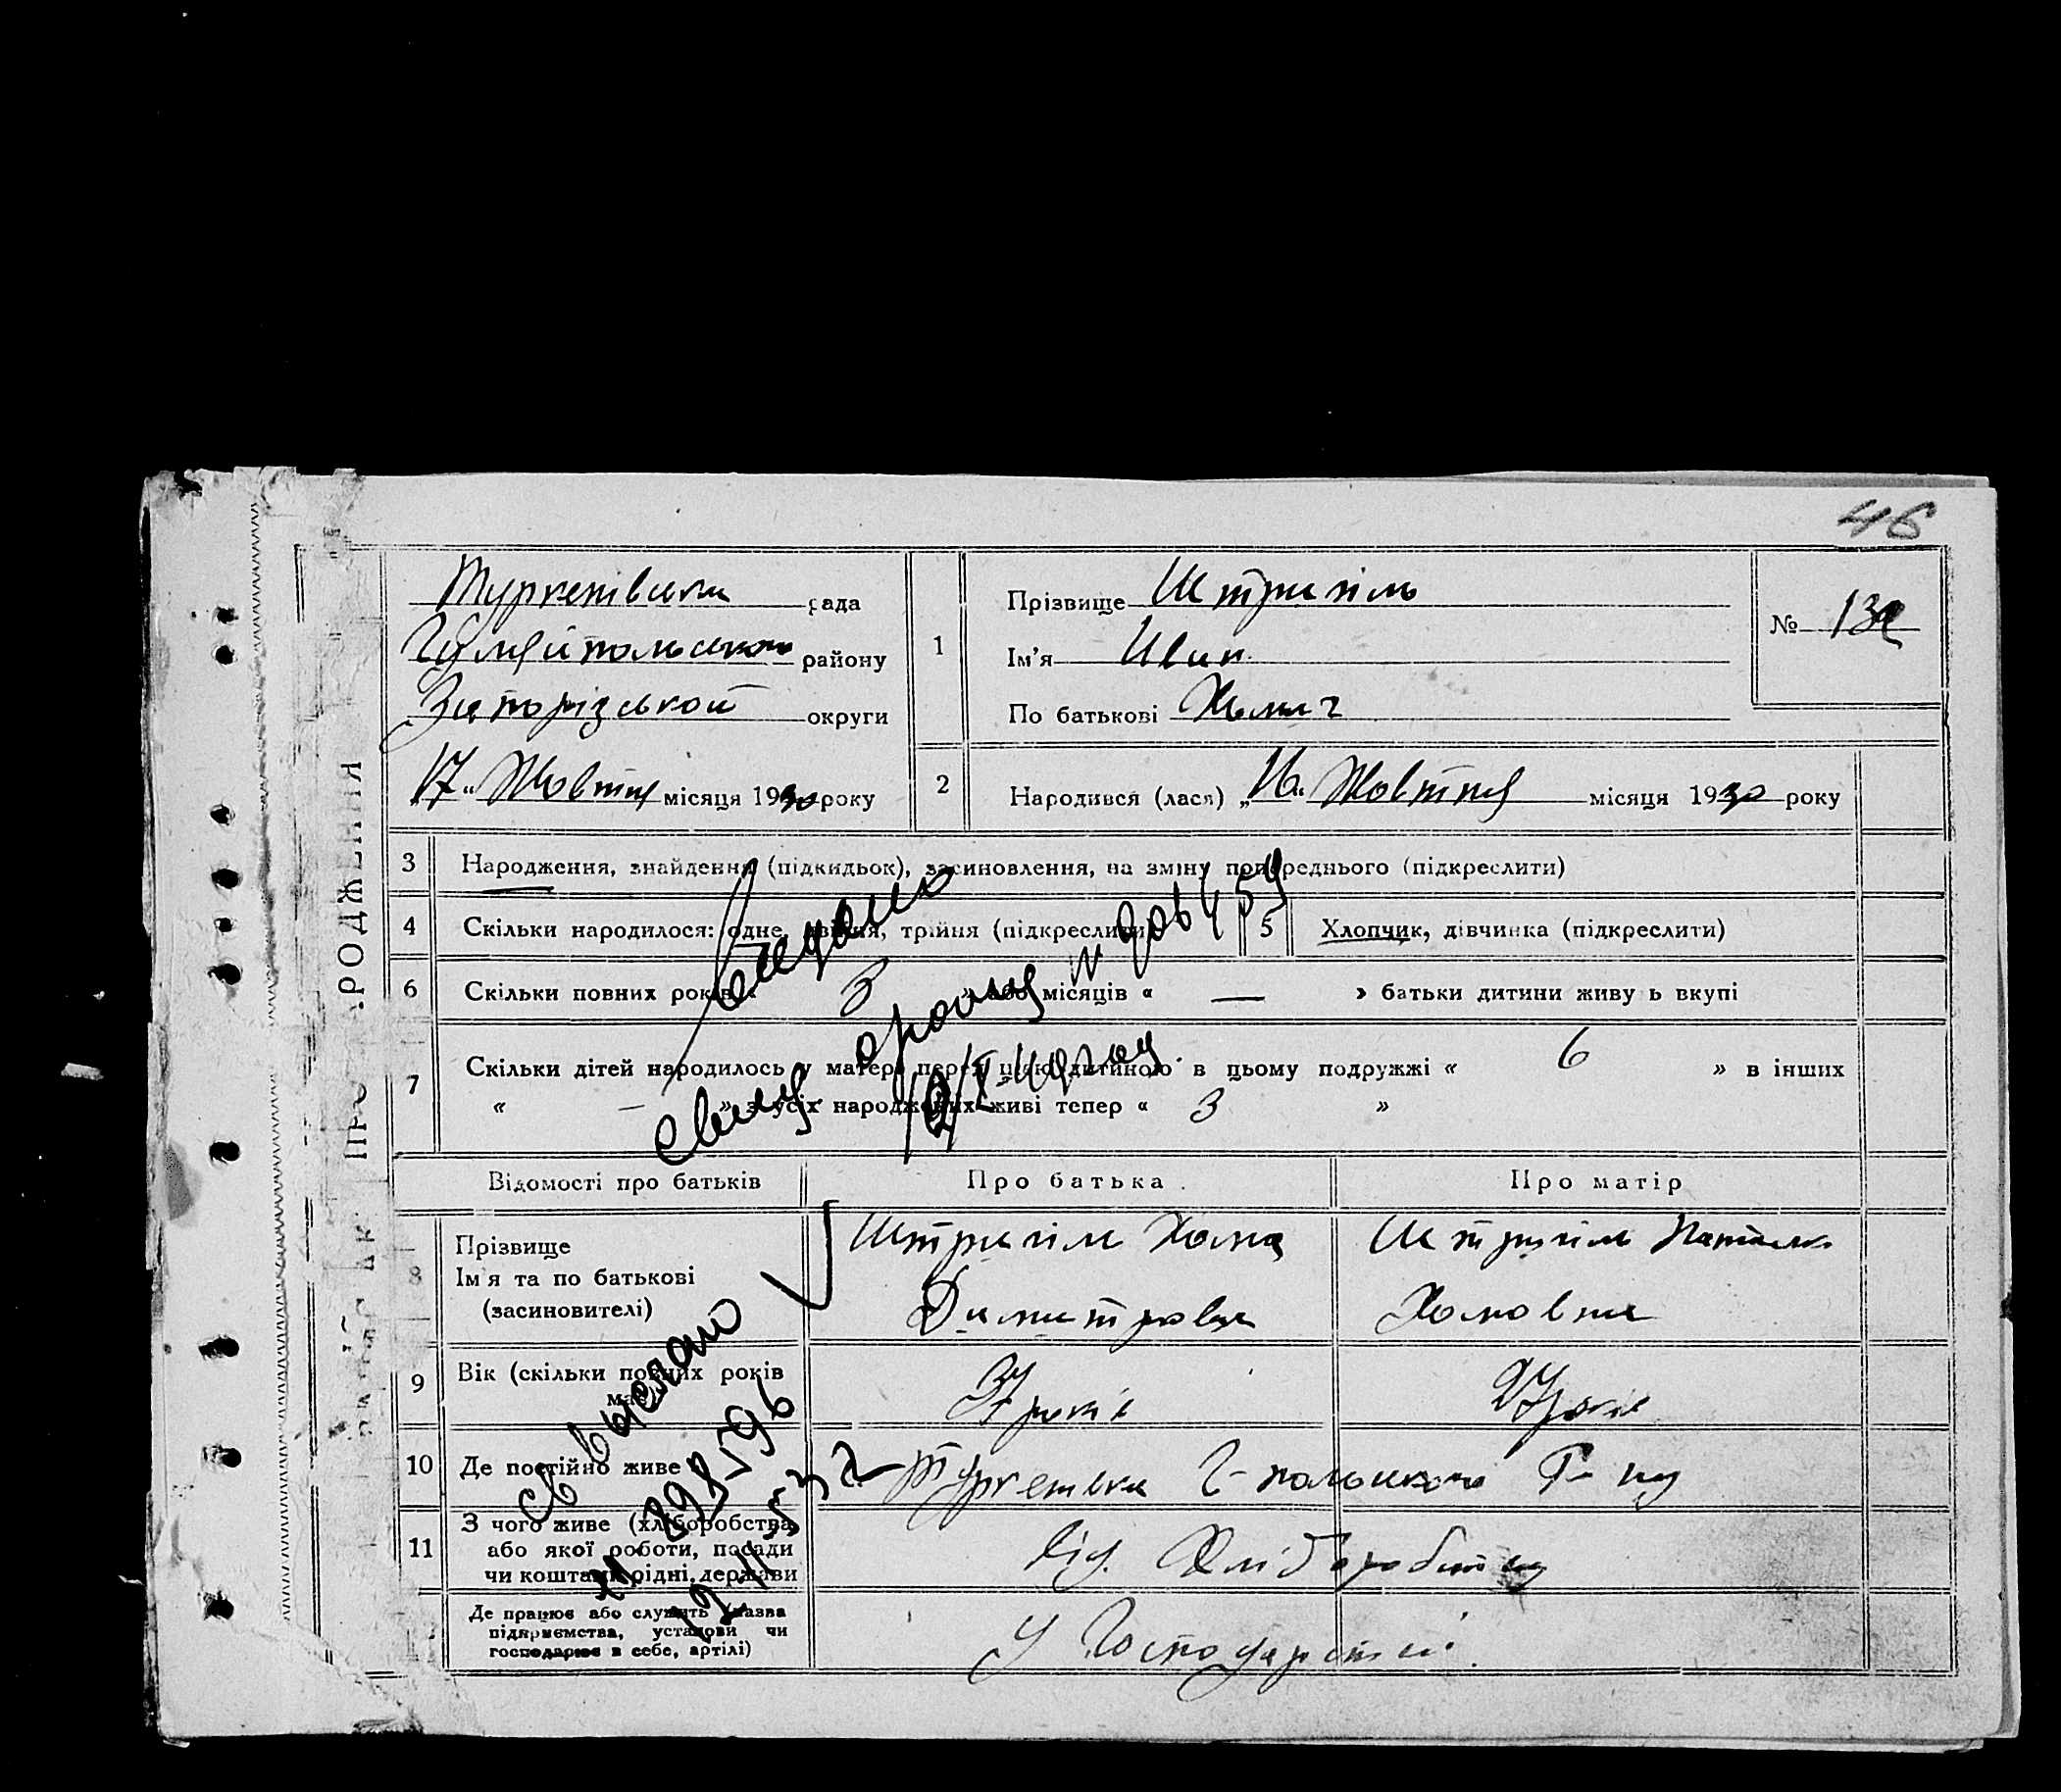 46
ПРО РОДЖЕННЯ
Туркенівська рада
Гуляйпольського району
Запорізької округи
17 „ Жовтня місяця 1930 року
1
Прізвище Штригіль
Ім'я Иван
По батькові Хомич
№ 132
2
Народився (лася) „16„ Жовтня місяця 1930 року
3 Народження, знайдення (підкидьок), засиновлення, на зміну попереднього (підкреслити)
4 Скільки народилося: одне, двійня, трійня (підкреслити)
5 Хлопчик, дівчинка (підкреслити)
6 Скільки повних років « 3 » або місяців « — » батьки дитини живу ь вкупі
7 Скільки дітей народилось у матері перед цією дитиною в цьому подружжі « 6 » в інших
« — » з усіх народжених живі тепер « 3 »
Видано
свид.
Відомості про батьків
Про батька
Про матір
8 Прізвище
Ім'я та по батькові
(засиновителі)
Штригіль Хома
Димитрович
Штригіль Наталка
Хомовна
9 Вік (скільки повних років
має)
37 років
27 років
10 Де постійно живе
Туркенівка Г-польского Р-ну
11 З чого живе (хліборобства
або якої роботи, посади
чи коштами рідні, держави
від Хліборобства
Де працює або служить (назва
підприємства, установи чи
господарює в себе, артілі)
У Господарстві